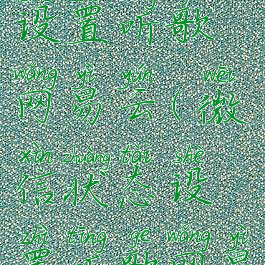 设置听歌
wǎng yì yún wēi
网易云(微
xìn zhuàng tài shè
信状态设
zhì tīng gē wǎng yì
置听歌网易